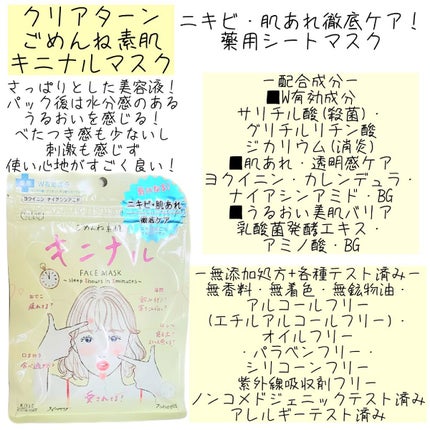 クリアターン
ごめんね素肌
キニナルマスク
さっぱりとした美容液！
パック後は水分感のある
うるおいを感じる！
べたつき感も少ないし
刺激も感じず
使い心地がすごく良い！
ニキビ・肌あれ徹底ケア！
薬用シートマスク
ー配合成分ー
■W有効成分
サリチル酸(殺菌)・
グリチルリチン酸
ジカリウム(消炎)
■肌あれ・透明感ケア
ヨクイニン・カレンデュラ・
ナイアシンアミド・BG
■うるおい美肌バリア
乳酸菌発酵エキス・
アミノ酸・BG
ー無添加処方+各種テスト済みー
無香料・無着色・無鉱物油・
アルコールフリー
(エチルアルコールフリー)・
オイルフリー
・パラベンフリー・
シリコーンフリー
紫外線吸収剤フリー
ノンコメドジェニックテスト済み
アレルギーテスト済み
W有効成分
ヨクイニン ナイアシンアミド
ニキビ・肌あれ
徹底ケア
ごめんね素肌
キニナル
FACE MASK
〜sleep 8hours in 5minutes〜
愛されてる!